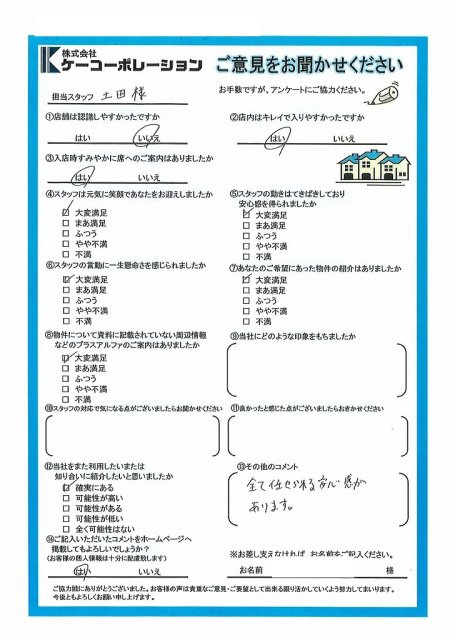 株式会社
ケーコーポレーション
ご意見をお聞かせください
担当スタッフ 土田様
お手数ですが、アンケートにご協力ください。
①店舗は認識しやすかったですか
はい いいえ
②店内はキレイで入りやすかったですか
はい いいえ
③入店時すみやかに席へのご案内はありましたか
はい いいえ
④スタッフは元気に笑顔であなたをお迎えしましたか
大変満足
まあ満足
ふつう
やや不満
不満
⑤スタッフの動きはてきぱきしており
安心感を得られましたか
大変満足
まあ満足
ふつう
やや不満
不満
⑥スタッフの言動に一生懸命さを感じられましたか
大変満足
まあ満足
ふつう
やや不満
不満
⑦あなたのご希望にあった物件の紹介はありましたか
大変満足
まあ満足
ふつう
やや不満
不満
⑧物件について資料に記載されていない周辺情報
などのプラスアルファのご案内はありましたか
大変満足
まあ満足
ふつう
やや不満
不満
⑨当社にどのような印象をもちましたか
⑩スタッフの対応で気になる点がございましたらお聞かせください
⑪良かったと感じた点がございましたらおきかせください
⑫当社をまた利用したいまたは
知り合いに紹介したいと思いましたか
確実にある
可能性が高い
可能性がある
可能性が低い
全く可能性はない
⑬その他のコメント
全て任せられる安心感が
あります。
⑭ご記入いただいたコメントをホームページへ
掲載してもよろしいでしょうか？
(お客様の個人情報は十分に配慮致します)
はい いいえ
※お差し支えなければ、お名前をご記入ください。
お名前 様
ご協力誠にありがとうございました。お客様の声は貴重なご意見・ご要望として出来る限り活かしていくよう努力してまいります。
今後ともよろしくお願い申し上げます。